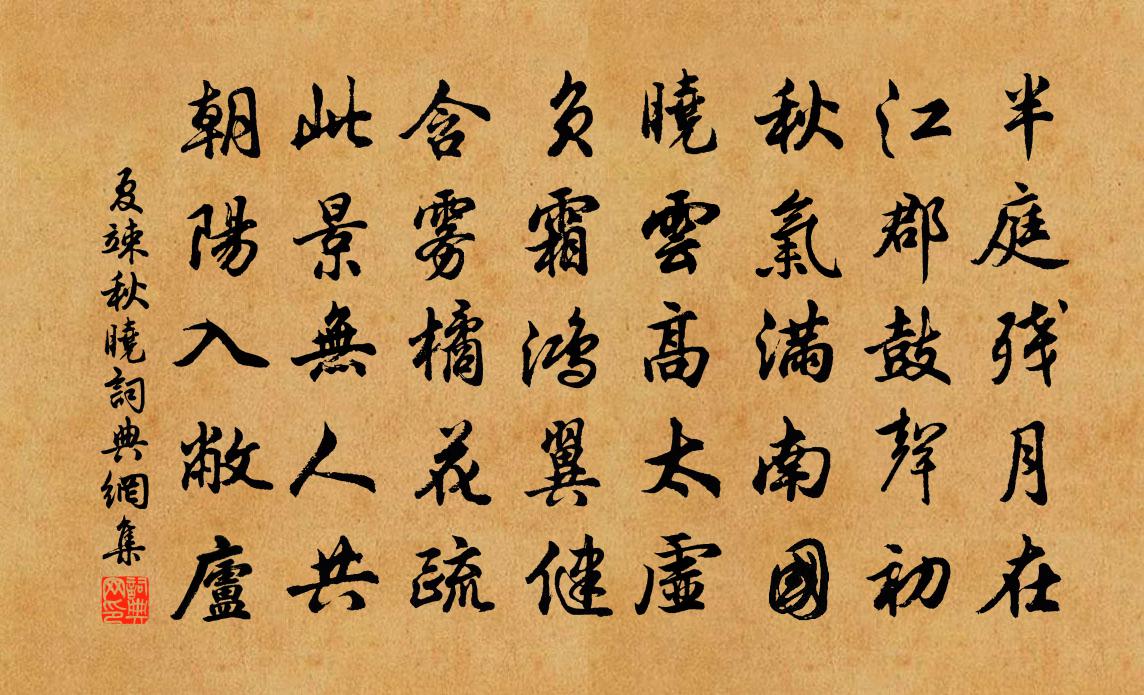 半庭殘月在
江郡鼓聲初
秋氣滿南國
曉雲高太虛
負霜鴻翼健
含霧橘花疏
此景無人共
朝陽入敝廬
夏竦秋曉詞典網集
詞典網印